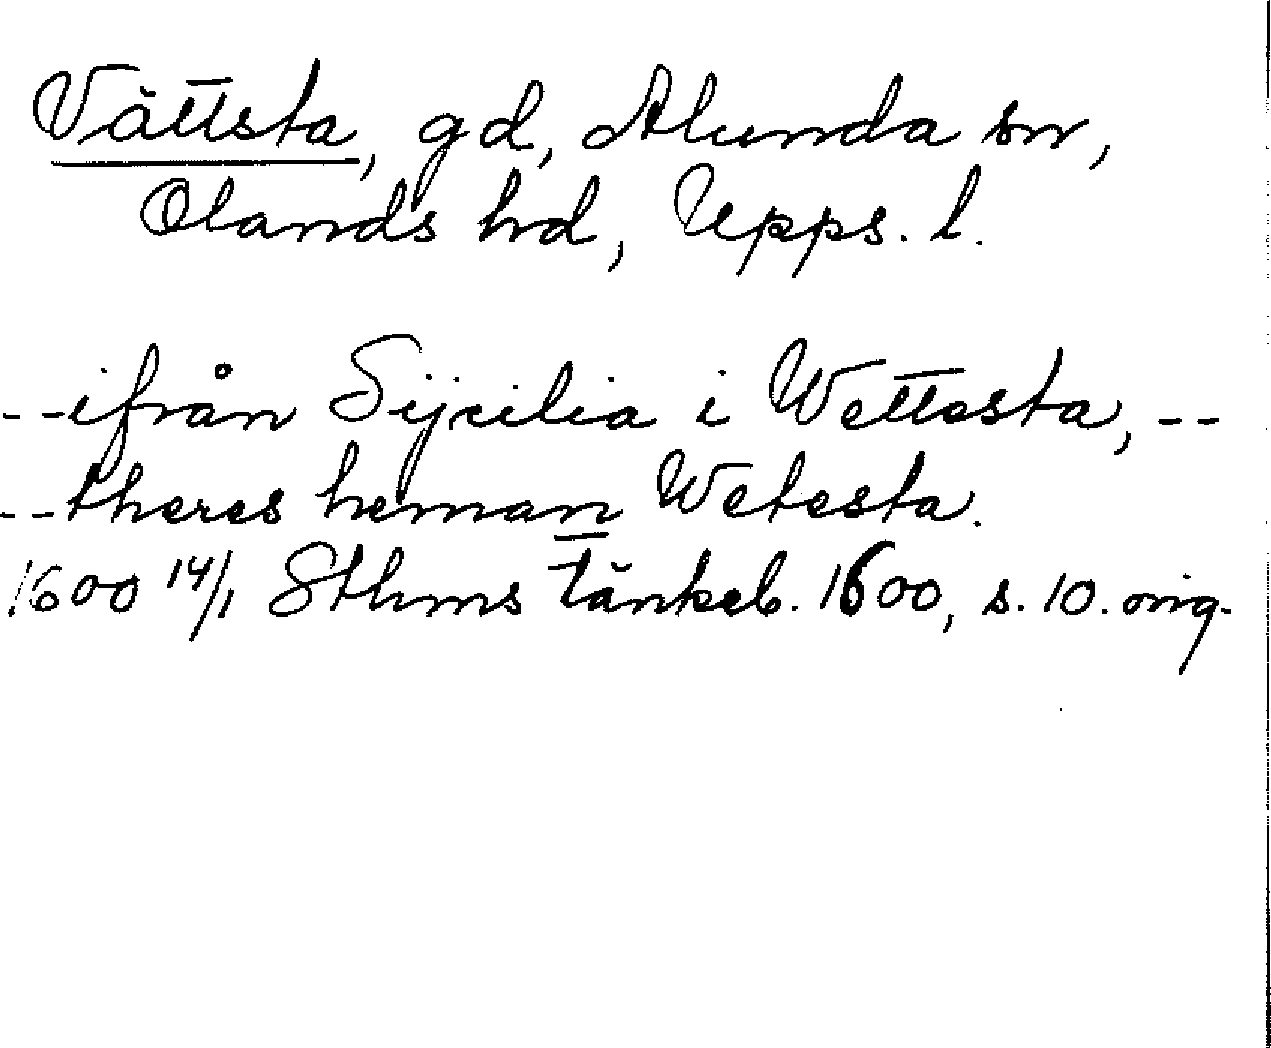 Vättsta, gd, Alunda sn,
Olands hd, Upps. l.
--ifrån Sijcilia i Wettesta, --
--theres heman Wetesta.
1600 14/1 Sthms tänkeb. 1600, s. 10. orig.